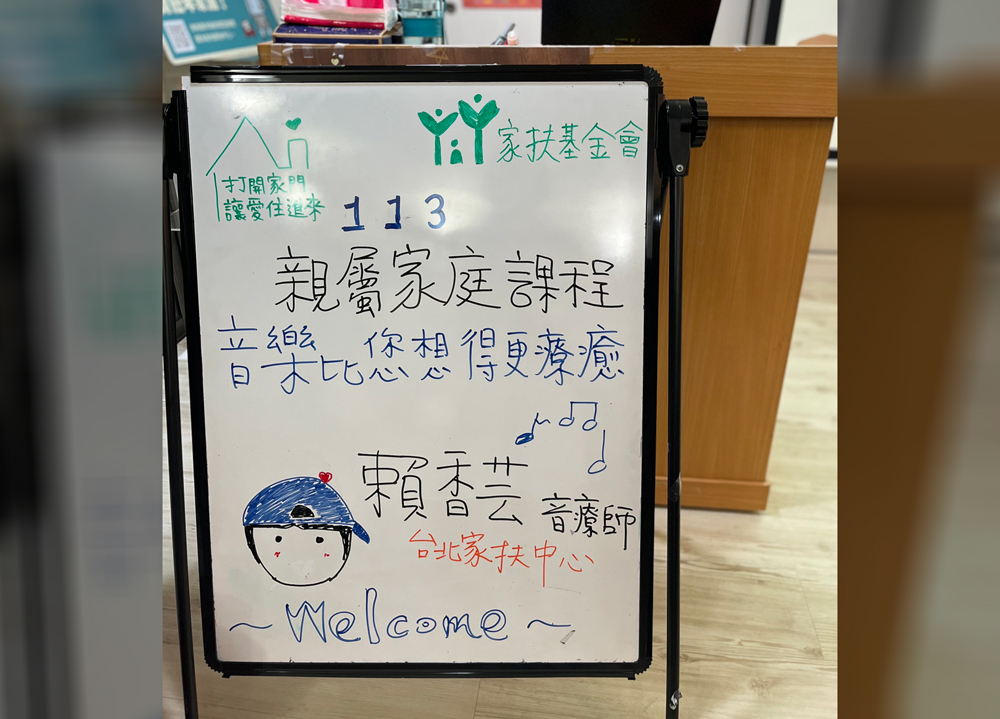 家扶基金會
打開家門
讓愛住進來
113
親屬家庭課程
音樂比您想得更療癒
賴香芸 音療師
台北家扶中心
~Welcome~